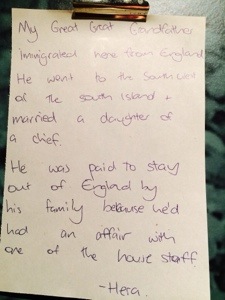 My Great Great Grandfather
Immigrated here from England
He went to the South West
of the South Island +
married a daughter of
a chief.
He was paid to stay
out of England by
his family because he'd
had an affair with
one of the house staff.
-Hera.